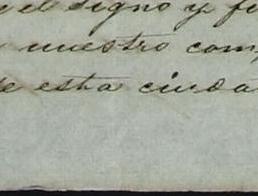 el signo y fi
nuestro com
de esta ciuda